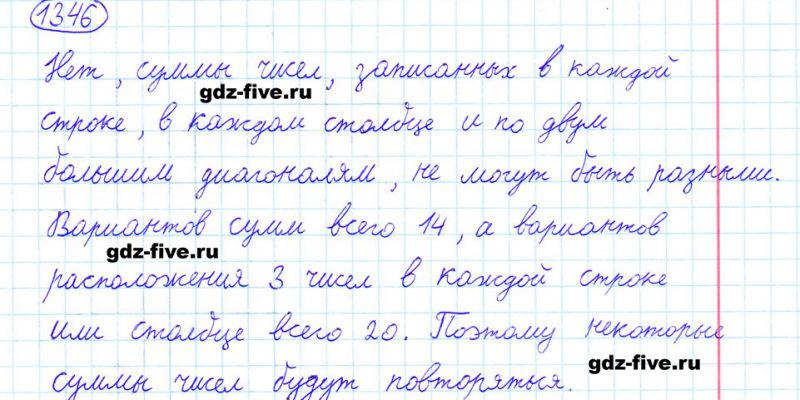 1346
Нет, суммы чисел, записанных в каждой
gdz-five.ru
строке, в каждом столбце и по двум
большим диагоналям, не могут быть разными.
Вариантов сумм всего 14, а вариантов
gdz-five.ru
расположения 3 чисел в каждой строке
или столбце всего 20. Поэтому некоторые
gdz-five.ru
суммы чисел будут повторяться.